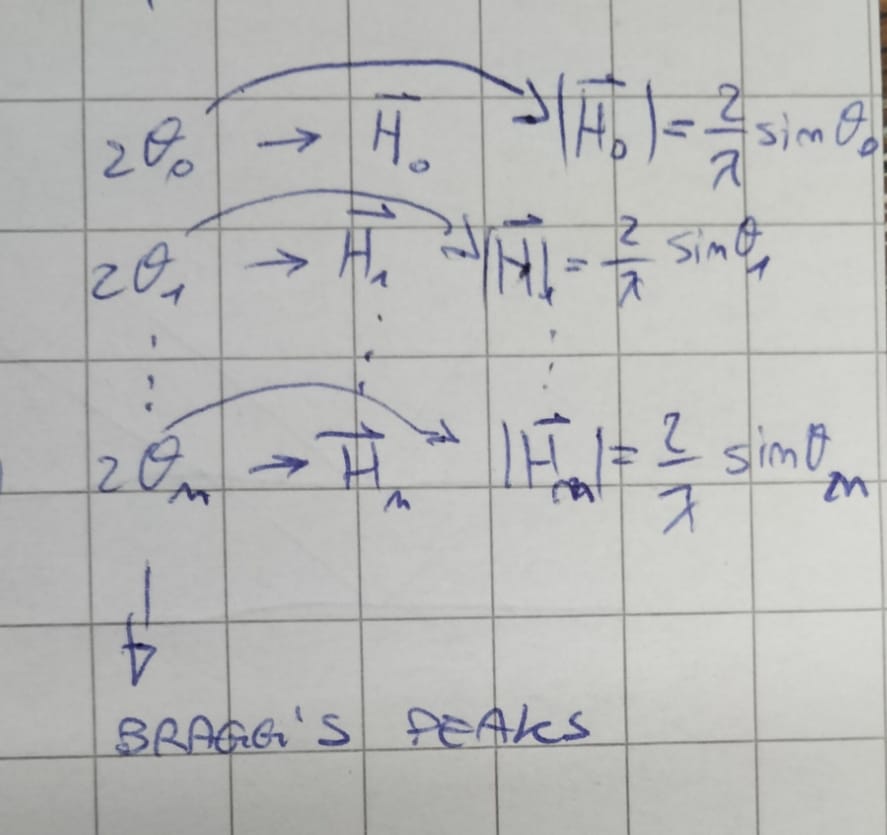 2θ₀ → H⃗₀ |H⃗₀| = 2/λ sin θ₀
2θ₁ → H⃗₁ |H⃗₁| = 2/λ sin θ₁
⋮ ⋮ ⋮
2θₙ → H⃗ₙ |H⃗ₙ| = 2/λ sin θₙ
↓
BRAGG'S PEAKS